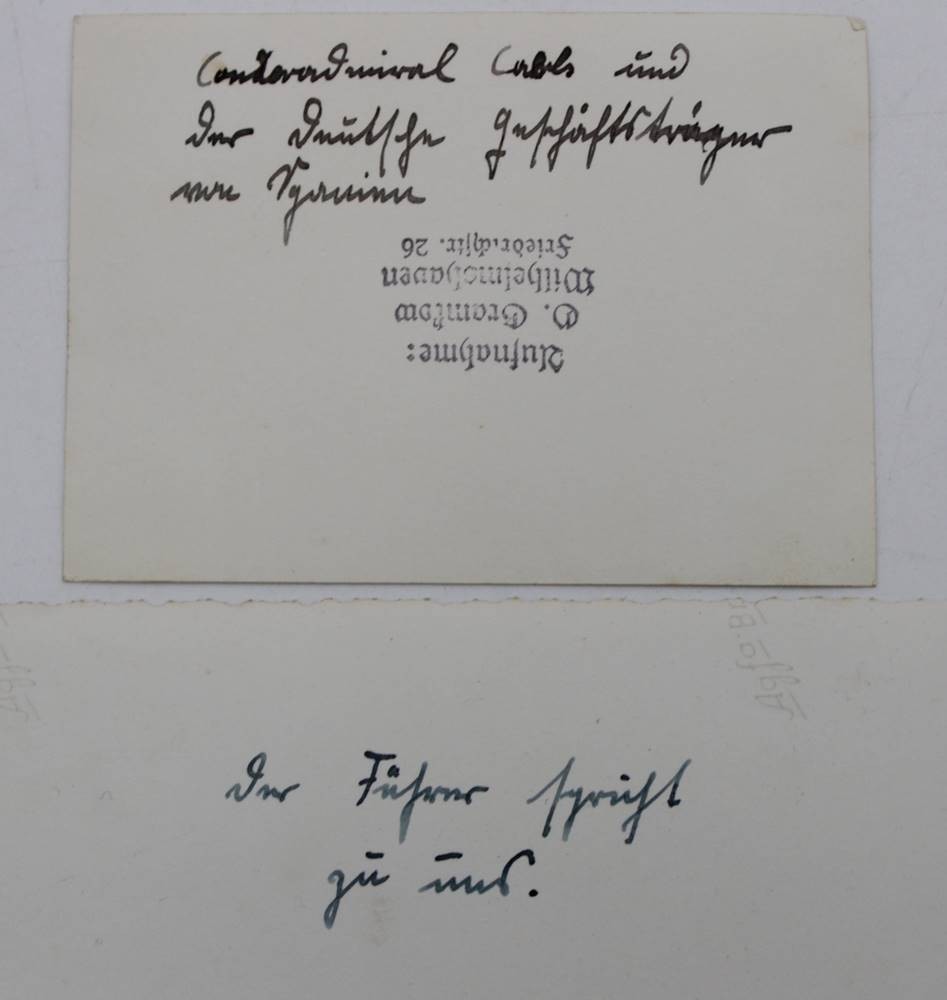 Conteradmiral Carls und
der deutsche Geschäftsträger
von Spanien
Aufnahme:
O. Gramkow
Wilhelmshaven
Friedrichstr. 26
Agfa-
der Führer spricht
zu uns.